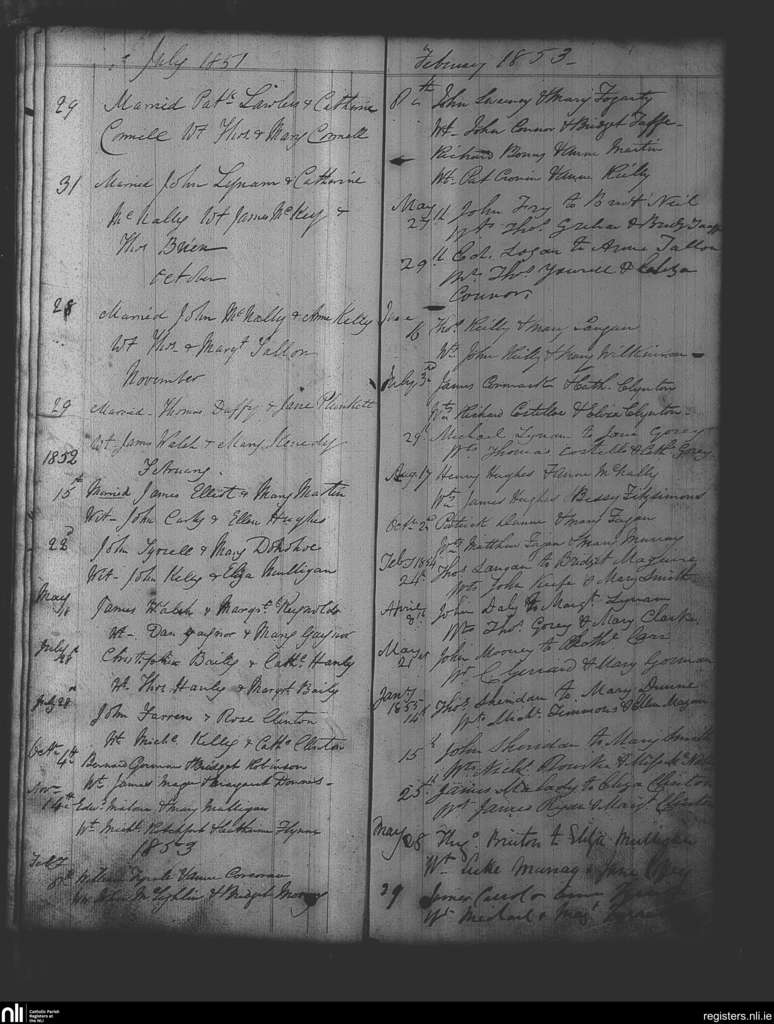 July 1851
29 Married Patk Lawless & Catherine
Connell Wt Thos & Mary Connell
31 Married John Lynam & Catherine
McNally Wt James McKey &
Thos Brien
October
28 Married John McNally & Anne Kelly
Wt Thos & Margt Tallon
November
29 Married Thomas Duffy & Jane Plunkett
Wt James Walsh & Mary Kenedy
1852
February
15th Married James Elliot & Mary Martin
Wit John Carty & Ellen Hughes
22d John Tyrrell & Mary Donohoe
Wit John Kelly & Eliza Mulligan
May
James Walsh & Margt Reynolds
Wt Dan Gaynor & Mary Gaynor
July
Christopher Baily & Cathe Hanly
Wt Thos Hanly & Margt Baily
July 28th
John Farren & Rose Clinton
Wt Michl Kelly & Cathe Clinton
Octr 4th Bernard Gorman & Bridget Robinson
Wt James & Margaret
Novr
14th Edwd Malone & Mary Mulligan
Wt Michl & Catherine Flynn
1853
Feby
8th William & Anne Corcoran
Wt John & Bridget
February 1853
8th John Sweeney & Mary Fogarty
Wt John Connor & Bridget Taffe
Richard & Anne Martin
Wt Pat Cronin & Anne Reilly
May
27th John Fry to Bridt Neil
Wts Thos & Bridgt
29th Edd Logan to Anne Tallon
Wts Thos Yourell & Eliza
Connor
June
16 Thos Reilly & Mary Langan
Wt John Reilly & Mary Wilkinson
July 3d James Cormack & Cath Clynton
Wts Richard Costelloe & Eliza Clynton
29th Michael Lynam to Jane Gorey
Wts Thomas Costello & Cath Gorey
Augt 17 Henry Hughes & Anne McNally
Wts James Hughes Bessy Fitzsimons
Octr 2d Patrick & Mary Fagan
Wts Matthew Fagan & Mary Murray
Feby 1854
24th Thos Langan to Bridget Maguire
Wts John Keefe & Mary Smith
April
8th John Daly to Margt Lynam
Wts Thos Gorey & Mary Clarke
May
21st John Mooney to Cathe Carr
Wt C Gerrard & Mary Gorman
Jany
1855
14th Thos Sheridan to Mary Dunne
Wts Michl Timmons & Ellen
15th John Sheridan to Mary Smith
Wts Nichl Rourke &
25th James Malady to Eliza Clinton
Wt James Ryan & Margt Clinton
May 28 Hugo Brinton to Eliza Mulligan
Wt Luke Murray & Jane
29 James Carrol & Anne
Wt Michael & Margt
nli
Catholic Parish
Registers at
the NLI
registers.nli.ie